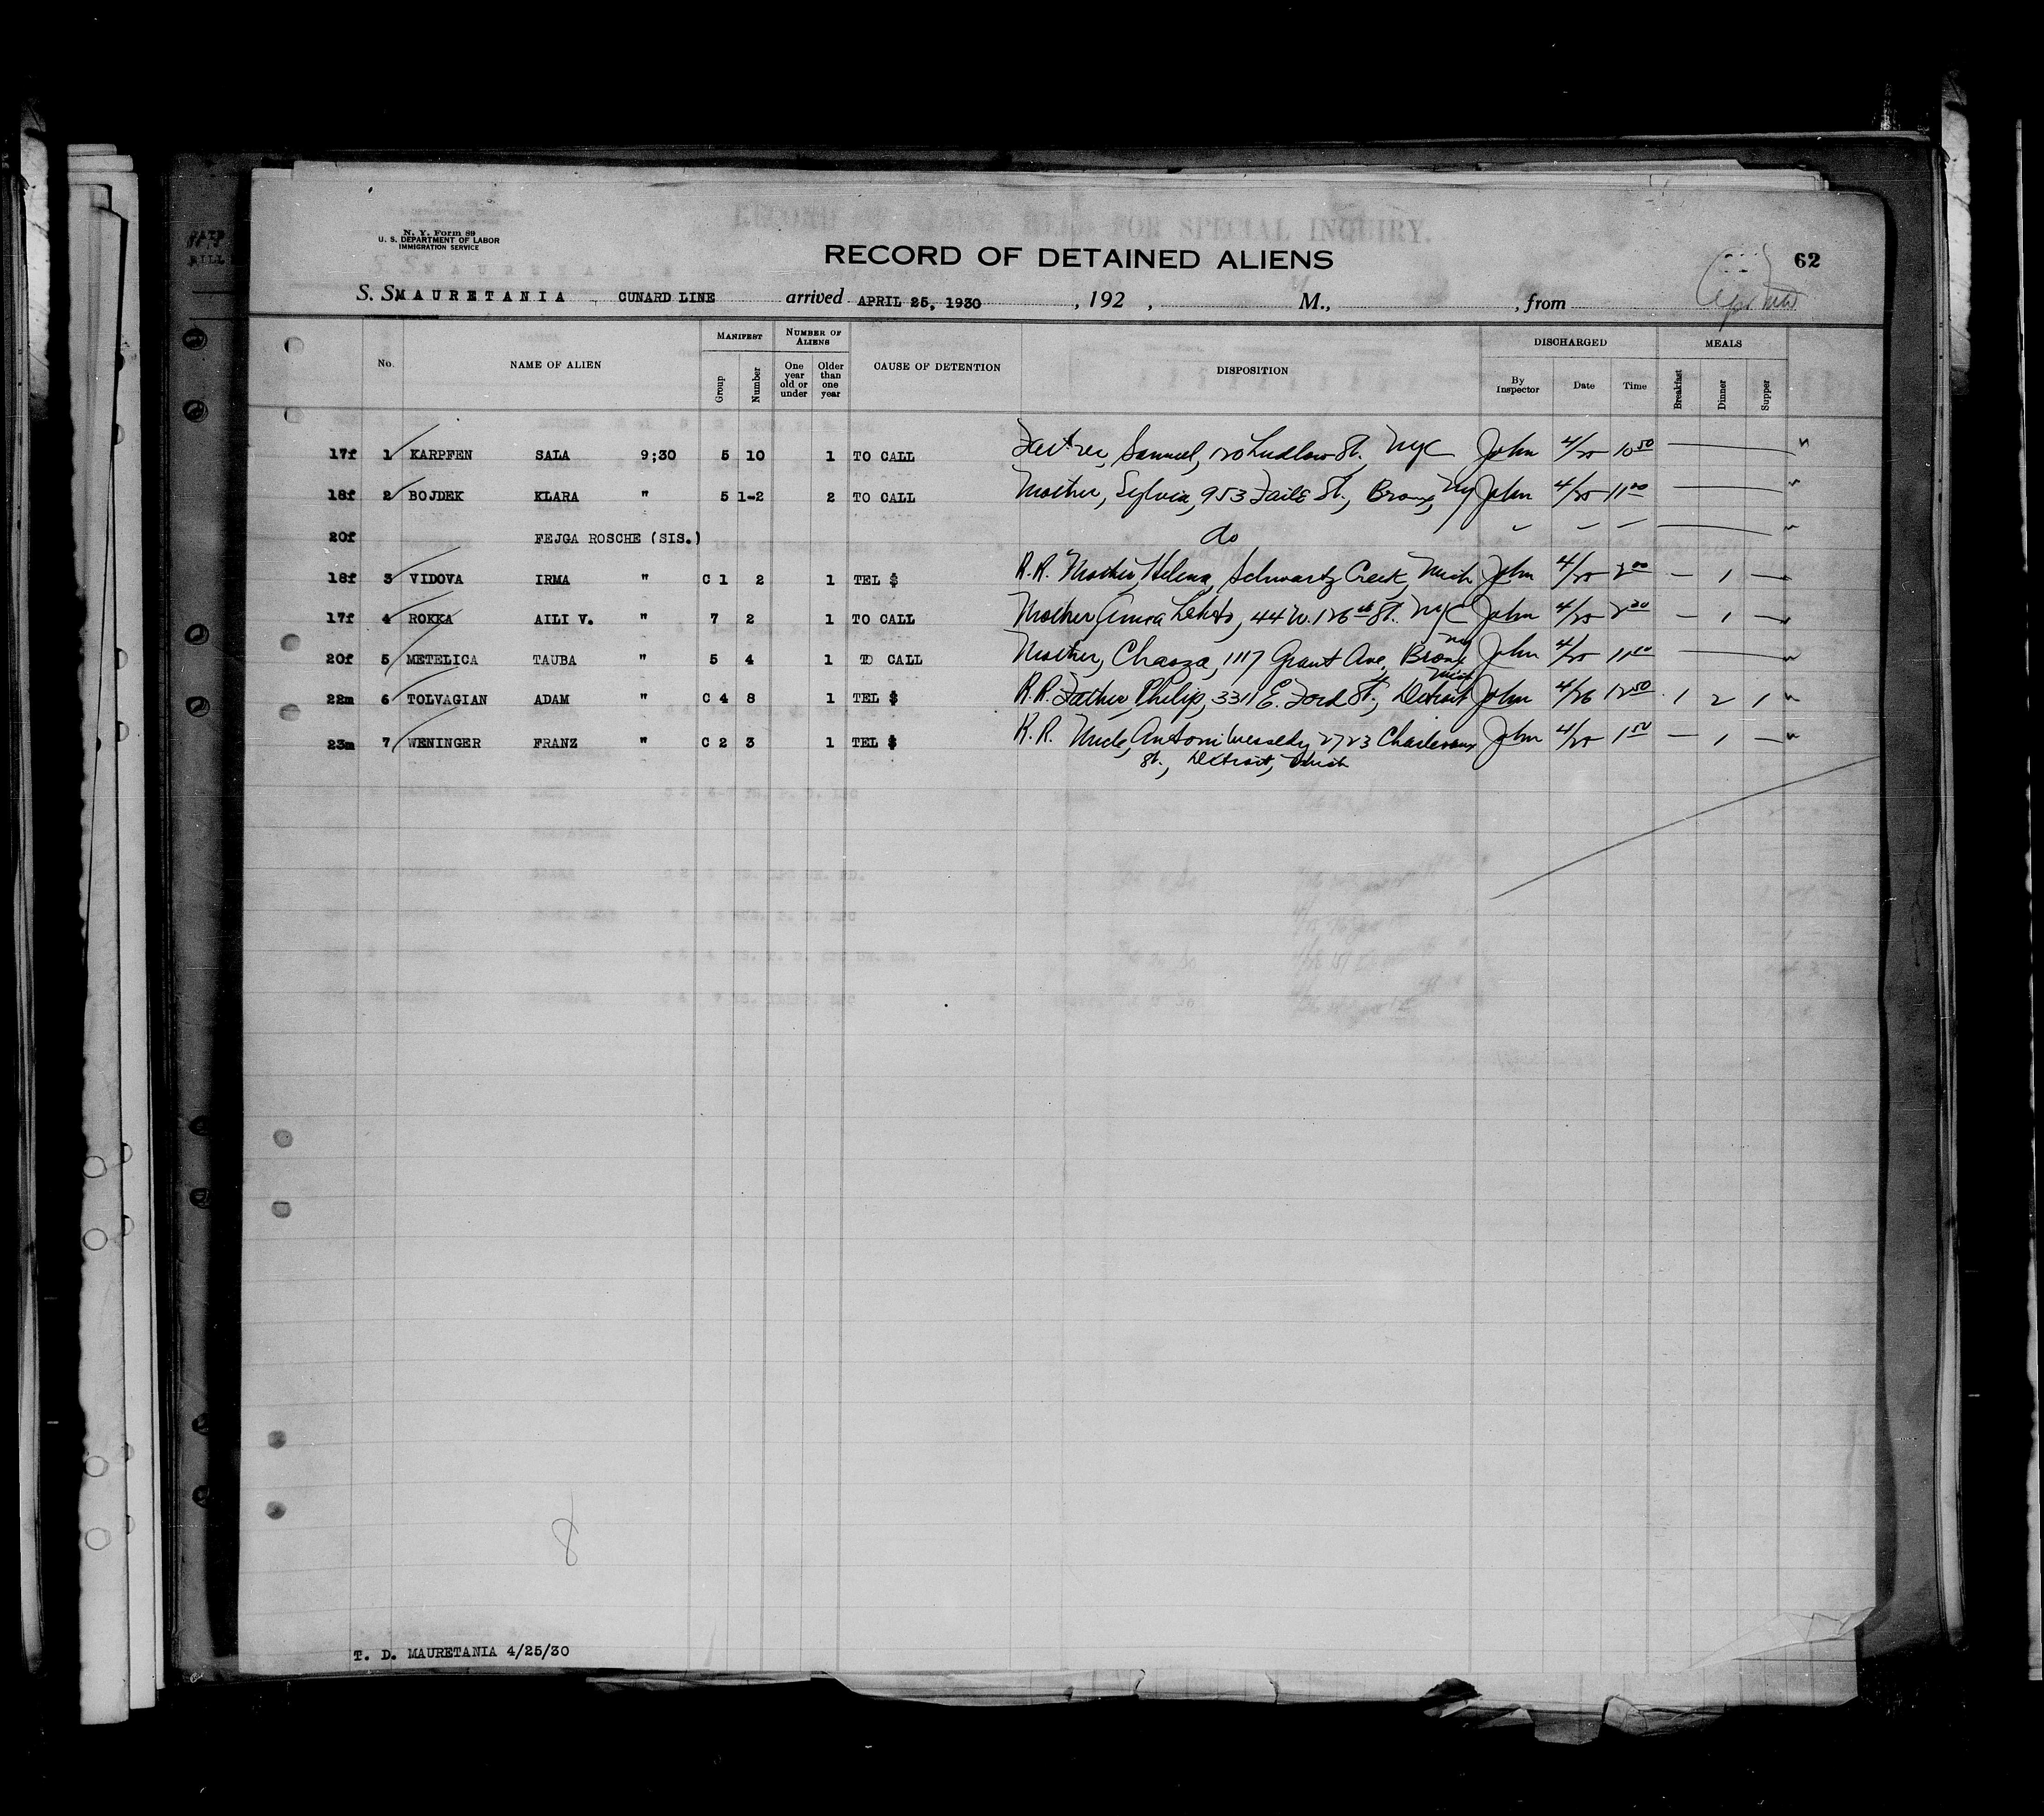 N. Y. Form 89
U. S. DEPARTMENT OF LABOR
IMMIGRATION SERVICE
RECORD OF DETAINED ALIENS
62
S. S. MAURETANIA , CUNARD LINE arrived APRIL 25, 1930 , 192 , M., , from
No. NAME OF ALIEN MANIFEST Group Number NUMBER OF ALIENS One year old or under Older than one year CAUSE OF DETENTION DISPOSITION DISCHARGED By Inspector Date Time MEALS Breakfast Dinner Supper
17f 1 KARPFEN SALA 9;30 5 10 1 TO CALL Father, Samuel, 120 Ludlow St. NYC John 4/25 10 50
18f 2 BOJDEK KLARA " 5 1-2 2 TO CALL Mother, Sylvia, 953 Faile St., Bronx, NY John 4/25 11 00
20f FEJGA ROSCHE (SIS.) do
18f 3 VIDOVA IRMA " C 1 2 1 TEL $ R.R. Mother, Helena, Schwartz Creek, Mich John 4/25 2 00 — 1 —
17f 4 ROKKA AILI V. " 7 2 1 TO CALL Mother Anna Lehto, 44 W. 126th St. NYC John 4/25 2 20 — 1 —
20f 5 METELICA TAUBA " 5 4 1 TO CALL Mother, 1117 Grant Ave, Bronx NY John 4/25 11
22m 6 TOLVAGIAN ADAM " C 4 8 1 TEL $ R.R. Father, Philip, 3311 E. Ford St., Detroit Mich John 4/26 12 50 1 2 1
23m 7 WENINGER FRANZ " C 2 3 1 TEL $ R.R. Uncle, Antoni 2723 Charlevoix John 4/25 1 50 — 1 —
St., Detroit, Mich
8
T. D. MAURETANIA 4/25/30